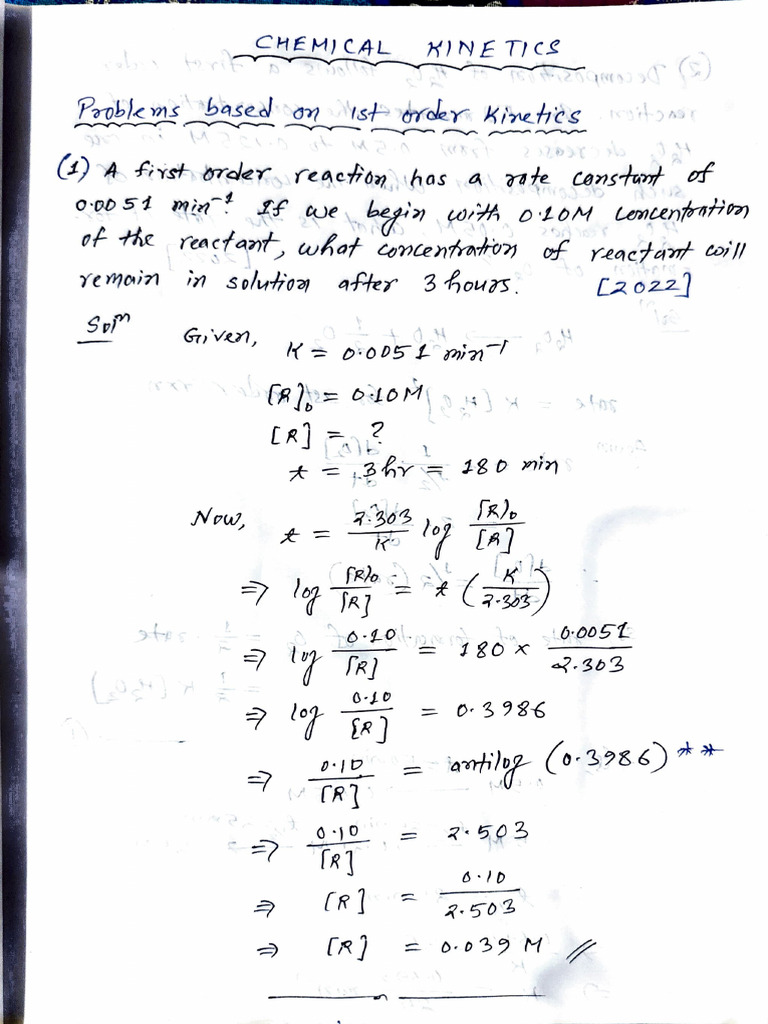 CHEMICAL KINETICS
Problems based on 1st order Kinetics
(1) A first order reaction has a rate constant of
0.0051 min⁻¹. If we begin with 0.10M concentration
of the reactant, what concentration of reactant will
remain in solution after 3 hours. [2022]
Solⁿ Given,
K = 0.0051 min⁻¹
[R]₀ = 0.10M
[R] = ?
t = 3 hr = 180 min
Now, t = 2.303/K log [R]₀/[R]
⇒ log [R]₀/[R] = t (K/2.303)
⇒ log 0.10/[R] = 180 × 0.0051/2.303
⇒ log 0.10/[R] = 0.3986
⇒ 0.10/[R] = antilog (0.3986) **
⇒ 0.10/[R] = 2.503
⇒ [R] = 0.10/2.503
⇒ [R] = 0.039 M //